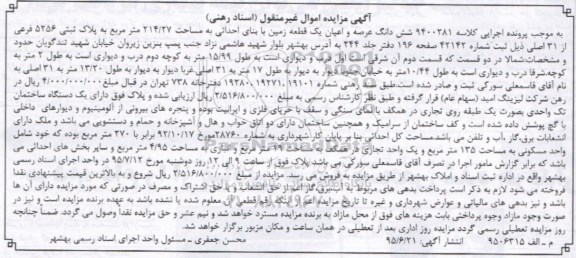 آگهی مزایده اموال غیرمنقول (اسناد رهنی)
به موجب پرونده اجرایی کلاسه 9400281 شش دانگ عرصه و اعیان یک قطعه زمین با بنای احداثی به مساحت 214/27 متر مربع به پلاک ثبتی 5256 فرعی
از 31 اصلی ذیل ثبت شماره 42142 صفحه 196 دفتر جلد 244 به آدرس بهشهر بلوار شهید هاشمی نژاد جنب پمپ بنزین زیروان خیابان شهید تندگویان حدود
و مشخصات شمالا در دو قسمت که قسمت دوم آن شرقی است اول درب و دیواری است به طول 15/99 متر به کوچه دوم درب و دیواری است به طول 2 متر به
کوچه، شرقا درب و دیواری است به طول 10/44 متر به خیابان جنوبا دیوار به دیوار به طول 17 متر به 31 اصلی غربا دیوار به دیوار به طول 13/20 متر به 31 اصلی به
نام آقای قاسمعلی سورکی ثبت و صادر شده است. طبق سند رهنی شماره 19101، 19271، 19280 دفترخانه 738 تهران در قبال مبلغ 4/000/000/000 ریال در
رهن شرکت لیزینگ امید (سهام عام) قرار گرفته و طبق نظر کارشناس رسمی به مبلغ 2/516/800/000 ریال ارزیابی شده و پلاک فوق دارای یک دستگاه ساختمان
تک واحدی بصورت یک طبقه روی تجاری در همکف با نمای سنگی و سقف با خرپای فلزی و ایرانیت بوده و پنجره های بیرونی از آلومینیوم و دیوارهای داخلی
با گچ پوشش داده شده است و کف ساختمان از سرامیک و همچنین ساختمان دارای دو اتاق خواب و هال و آشپزخانه و حمام و دستشویی می باشد و ملک دارای
انشعابات برق، گاز، آب و تلفن می باشد. مساحت کل احداثی بنا بر پایان کار شهرداری به شماره 28760 مورخ 92/10/17 برابر با 270 متر مربع بوده که خود شامل
واحد مسکونی به مساحت 135 متر مربع و یک واحد تجاری در همکف به مساحت 4/95 متر مربع و سایر بخش های احداثی می
باشد که برابر گزارش مامور اجرا در تصرف آقای قاسمعلی سورکی می باشد پلاک فوق از ساعت 9 الی 12 روز دوشنبه مورخ 95/7/12 در واحد اجرای اسناد رسمی
بهشهر واقع در اداره ثبت اسناد و املاک بهشهر از طریق مزایده به فروش می رسد. مزایده از مبلغ 2/516/800/000 ریال شروع و به بالاترین قیمت پیشنهادی نقدا
فروخته می شود لازم به ذکر است پرداخت بدهی های مربوط به آب، برق، گاز اعم از حق انشعاب و یا حق اشتراک و مصرف در صورتی که مورد مزایده دارای آن ها
باشد و نیز بدهی های مالیاتی و عوارض شهرداری و غیره تا تاریخ مزایده اعم از اینکه رقم قطعی آن معلوم شده یا نشده باشد به عهده برنده مزایده است و نیز در
صورت وجود مازاد وجوه پرداختی بابت هزینه های فوق از محل مازاد به برنده مزایده مسترد خواهد شد و نیم عشر و حق مزایده نقدا وصول می گردد. ضمنا چنانچه
روز مزایده تعطیل رسمی گردد مزایده روز اداری بعد از تعطیلی در همان ساعت و مکان مزبور برگزار خواهد شد.
م-الف 9506315 انتشار آگهی: 95/6/21 محسن جعفری - مسئولیت واحد اجرای اسناد رسمی بهشهر